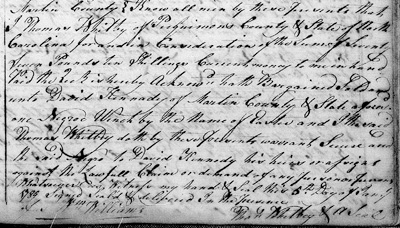 Martin County } Know all men by these presents that
I Thomas Whitby of Perquimons County & State of North
Carolina for and in Consideration of the Sum of Seventy
Pounds ten Shillings Current money to me in hand
Paid the Rec't is hereby Acknow'd hath Bargained Sold and
unto David Kennedy of Martin County & State aforesd
one Negro Wench by the Name of Easter and I the said
Thomas Whitby doth by these presents warrant Secure and
the said Negro to David Kennedy his heirs or assigns
against the Lawfull Claim or demand of any person or persons
Whatsoever as Witness my hand & Seal this 5th Day of
Signed Seald & delivered In the presence
Williams Thos Whitby & Seal